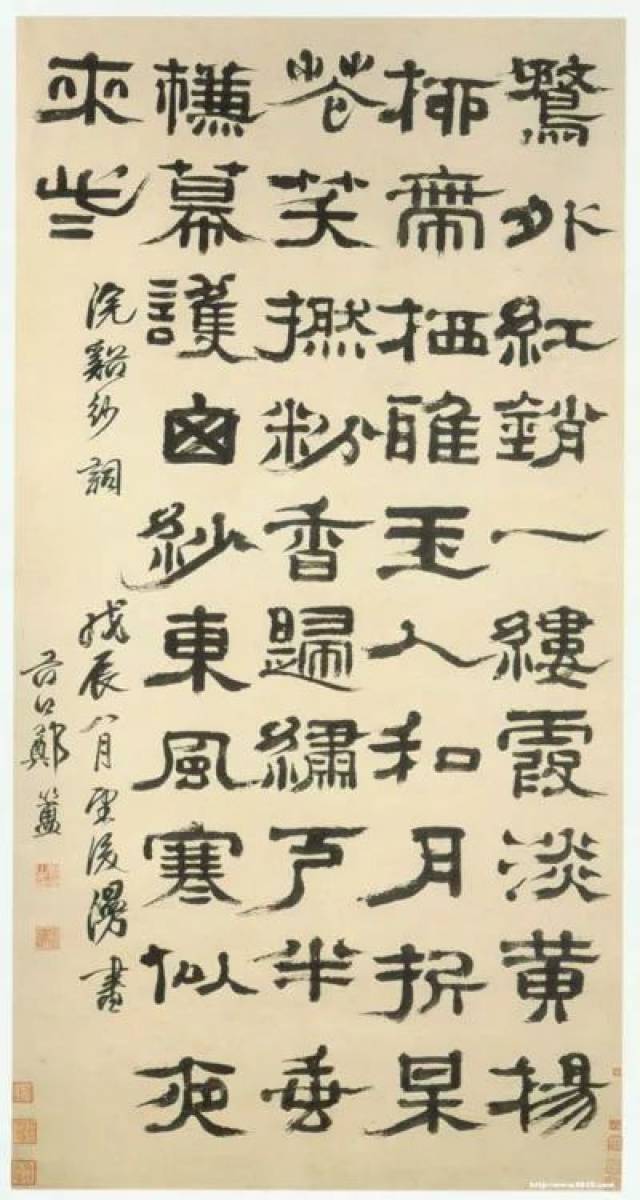 鶩外紅銷一縷霞淡黃楊
栁帶栖雅玉人和月折呆
花笑撚粉香歸繡戶半垂
幕護囪紗東風寒似夜
來些
浣谿紗詞 戊辰八月望後漫書
谷口鄭簠